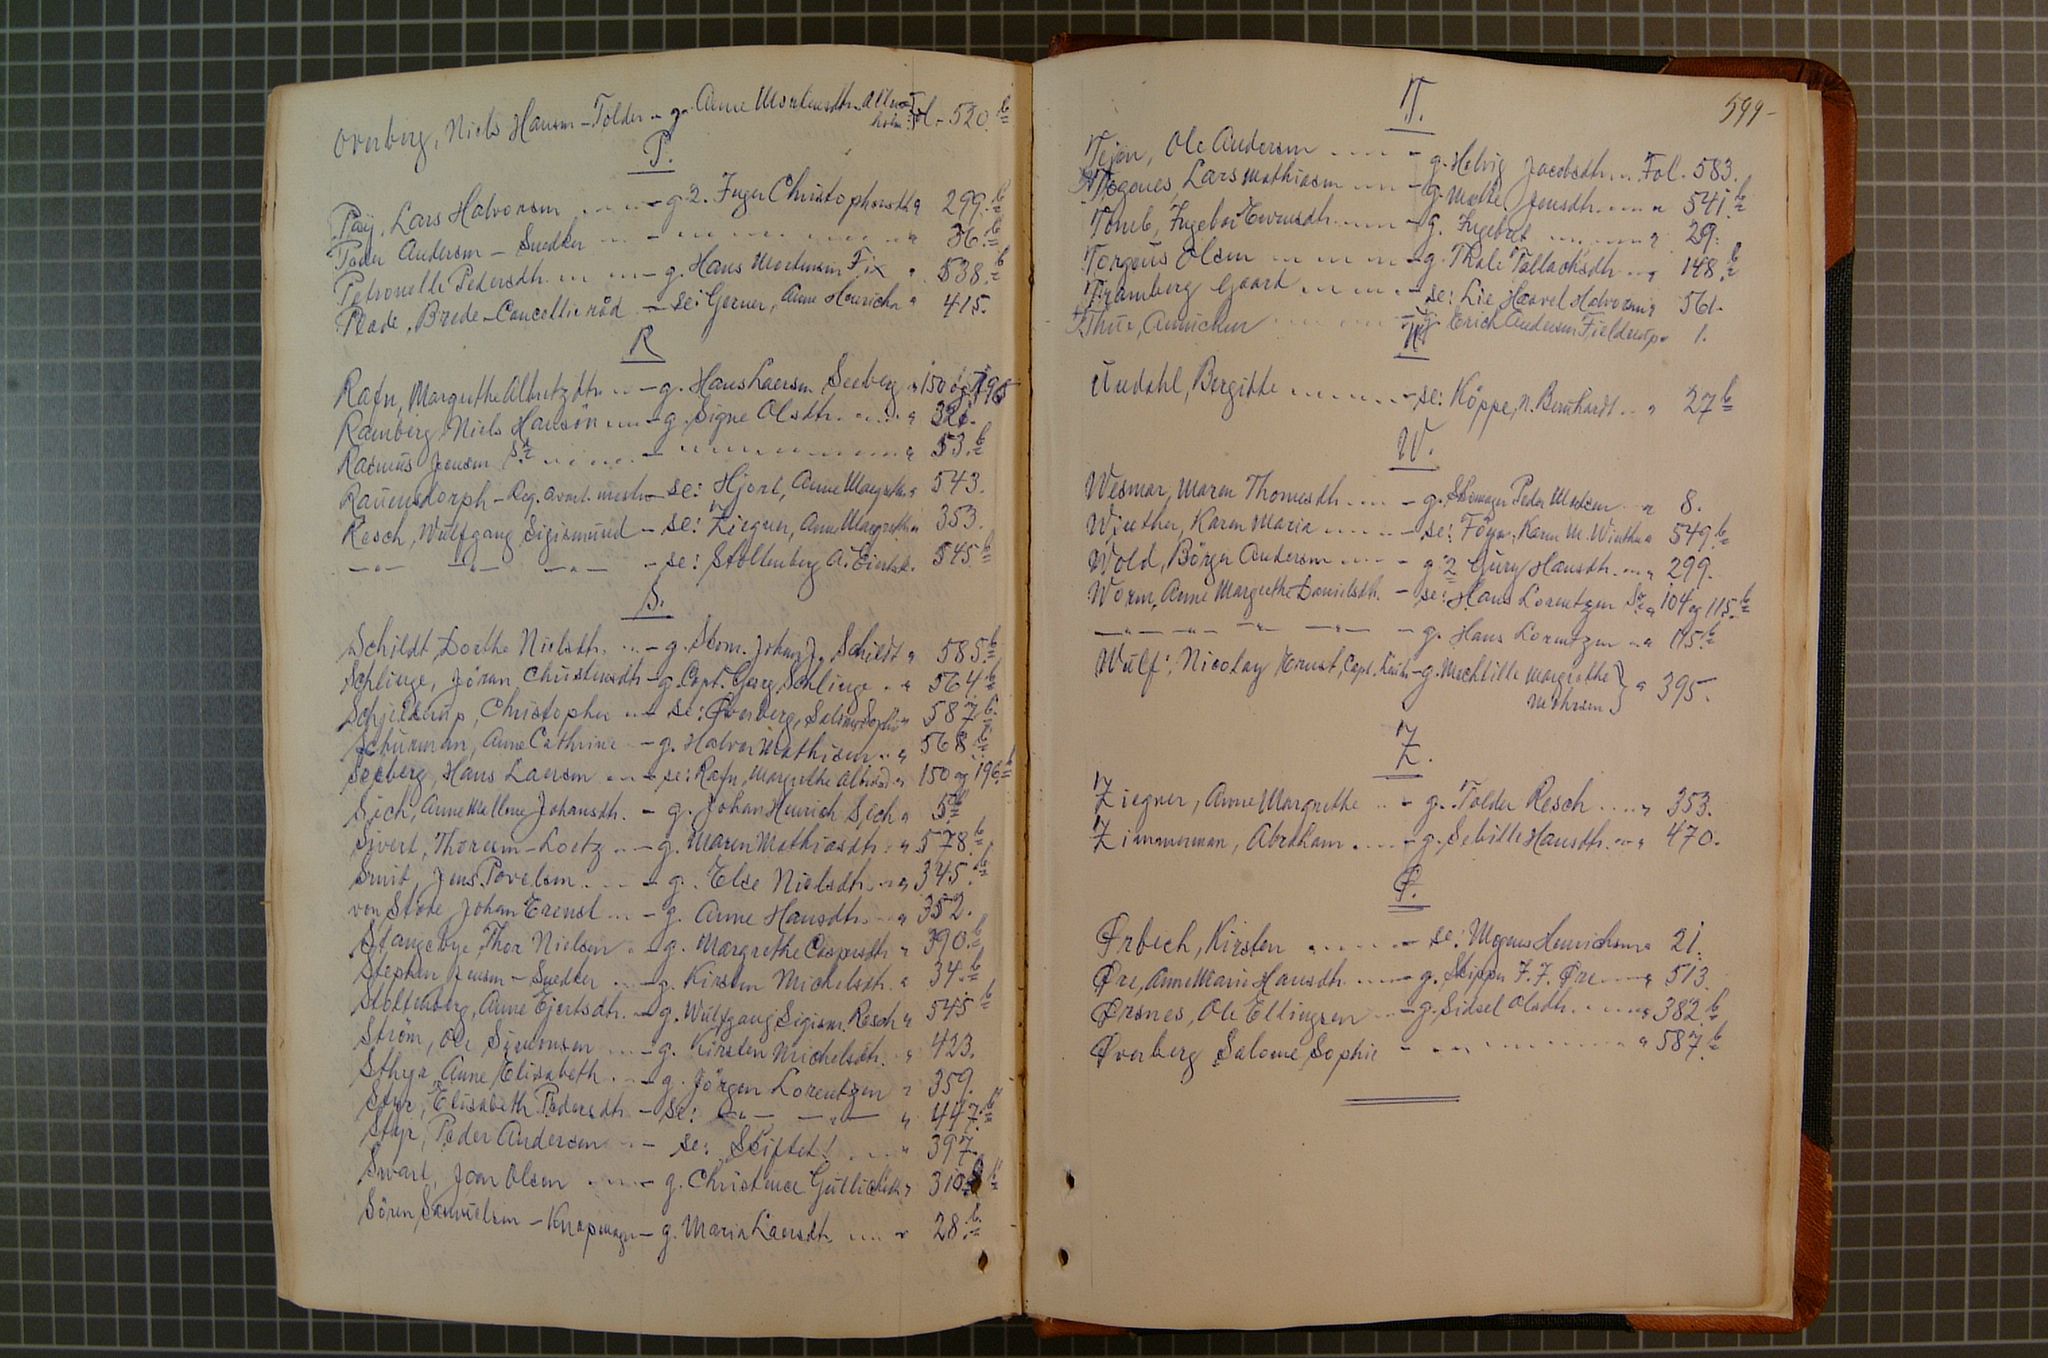 Overberg, Niels Hansen - Tolder - g. Anne Mortensdtr. Alme-
holm Fol - 520.b
P.
Pay, Lars Halvorsen - g 2. Inger Christophersdtr " 299.b
Peder Andersen - Snedker " 36.b
Petronelle Pedersdtr. - g. Hans Mortensen Fix " 538.b
Plade, Brede - Cancelliråd - se: Gerner, Anne Henrichs " 415.
R
Rafn, Margrethe Albretzdtr. - g. Hans Laersen Seeberg " 150 og 196
Ramberg, Niels Hansön - g. Signe Olsdtr. " 326.
Rasmus Jensen Sr. " 53.b
Rauensdorph - Reg. qvart. mester - se: Hjort, Anne Margrethe " 543.
Resch, Wulfgang Sigismund - se: Ziegner, Anne Margrethe " 353.
— " — — " — — " — - se: Stoltenberg A. Eiertsd. 545.b
S.
Schildt Dorthe Nielsdtr. - g. Skom. Johan J. Schildt " 585.b
Schlinge, Jöran Christensdtr - g. Capt. Georg Schlinge " 564.b
Schjelderup, Christopher - se: Øverberg, Salome Sophie " 587.b
Schurman, Anne Cathrine - g. Halvor Mathisen " 568.b
Seeberg, Hans Laersen - se: Rafn, Margrethe Albretzd " 150 og 196.b
Sich, Anne Malene Johansdtr. - g. Johan Henrich Sich " 5.b
Sivert, Thoresen - Loetz - g. Maren Mathiasdtr " 578.b
Smit, Jens Povelsen - g. Else Nielsdtr. " 345.b
von Stade Johan Ernst - g. Anne Hansdtr. " 352.
Stangebye, Thor Nielsen - g. Margrethe Caspersdtr " 390.b
Stephen Jensen - Snedker - g. Kirsten Michelsdtr. " 34.b
Stoltenberg, Anne Ejertsdtr. - g. Wulfgang Sigism. Resch " 545.b
Ström, Ole Simonsen - g. Kirsten Michelsdtr. " 423.
Sthyr, Anne Elisabeth - g. Jörgen Lorentzen " 359.
Styr, Elisabeth Pedersdtr. - se: — " — — " — " 447.b
Styr, Peder Andersen - se: Skiftet! " 397.
Svart, Joen Olsen - g. Christence Gullichsd " 310.b
Sören Samuelsen - Knapmager - g. Maria Laersdtr. " 28.b
599-
T.
Tejen, Ole Andersen - g. Helvig Jacobsdtr. Fol. 583.
Tegenes Lars Mathiasen - g. Mette Jensdtr. " 541.b
Tomb, Ingebor Evensdtr. - g. Ingebret " 29.
Torgeus Olsen - g. Thale Tallachsdtr " 148.b
Tramberg Gaard - se: Lie Haavel Halvorsen " 561.
Thue, Annichen - g. Erich Andersen Fieldrup " 1.
U.
Undahl, Bergitte - se: Köppe, N. Bernhardt " 27 b
W.
Wesmar, Maren Thomesdtr. - g. Skomager Peder Madsen " 8.
Winther, Karen Maria - se: Föyn, Karen M. Winther " 549.b
Wold, Börge Andersen - g 2 Gury Hansdtr. " 299.
Worm, Anne Margrethe Danielsdtr. - se: Hans Lorentzen Sr. " 104 og 115.b
— " — — " — — " — — " — - g. Hans Lorentzen " 115.b
Wulf, Nicolay Ernst, Capt. - g. Mechtille Margrethe
Mohrsen } " 395.
Z.
Ziegner, Anne Margrethe - g. Tolder Resch " 353.
Zimmerman, Abraham - g. Sebille Hansdtr. " 470.
Ø.
Ørbech, Kirsten - se: Mogens Henrichsen " 21.
Øre, Anne Marie Hansdtr. - g. Skipper J. J. Øre " 513.
Ørsnes, Ole Ellingsen - g. Sidsel Olsdtr. " 382.b
Øverberg Salome Sophie - " 587.b